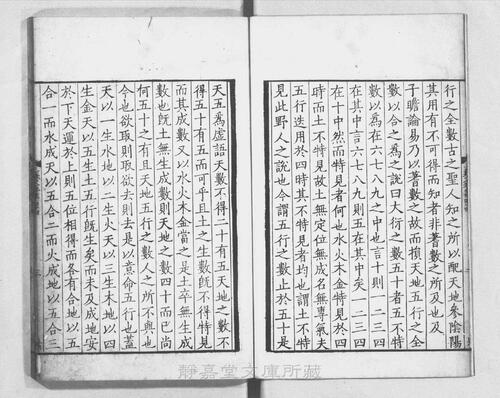 行之全數古之聖人知之所以配天地參陰陽
其用有不可得而知者非蓍數之所及也及
子瞻論易乃以蓍數之故而損天地五行之全
數以合之爲之說曰大衍之數五十者五不特
數以爲在六七八九之中也言十則一二三四
在其中言六七八九則五在其中矣一二三四
在十中然而特見者何也水火木金特見於四
時而土不特見故土無定位無成名無專氣夫
五行迭用於四時其不特見者均也謂土不特
見此野人之說也今謂五行之數止於五十是
天五爲虛語天數不得二十有五天地之數不
得五十有五而可乎且土之生數旣不得特見
而其成數又以水火木金當之是土卒無生成
數也旣土無生成數則天地之數四十而已尚
何五十之有且天地五行之數人之所不與也
今也欲取則取欲去則去是以意命五行也蓋
天以一生水地以二生火天以三生木地以四
生金天以五生土五行旣生矣而未及成地安
於下天運於上則五位相得而各有合地以五
合一而水成天以五合二而火成地以五合三
靜嘉堂文庫所藏